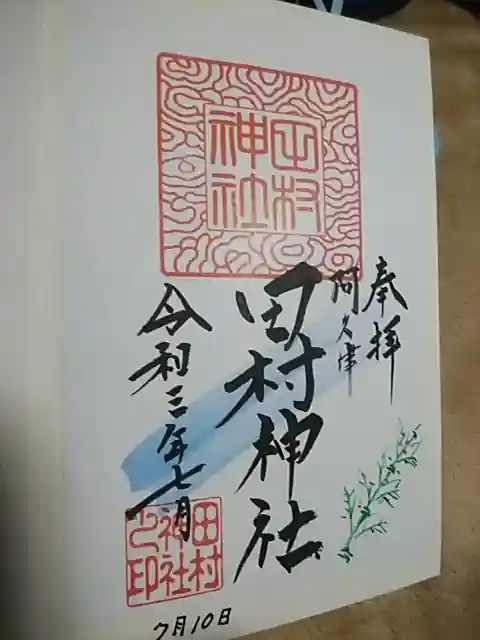 田村
神社
奉拝
阿久津
田村神社
令和三年七月
田村
神社
之印
7月10日